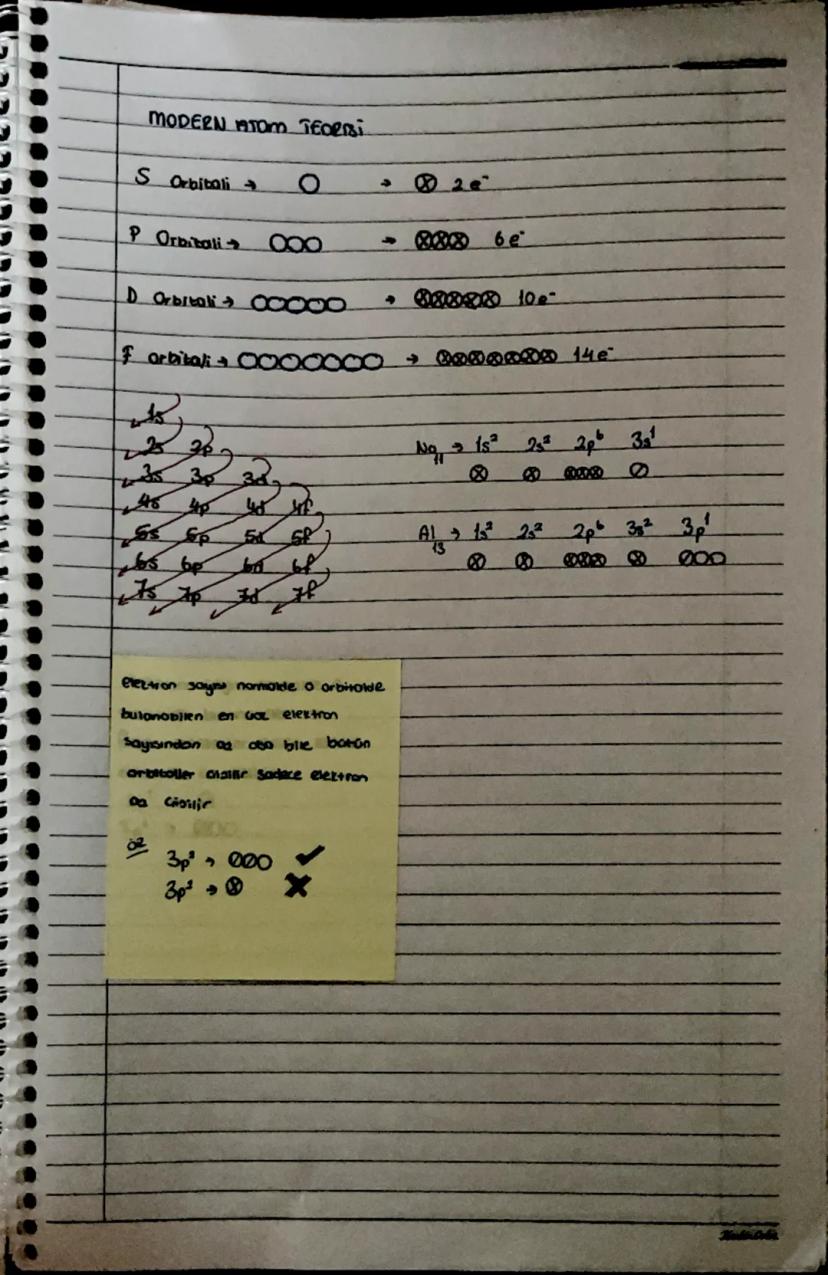 MODERN ATOM TEORİSİ
S Orbitali → O → ⊗ 2e⁻
P Orbitali → OOO → ⊗⊗⊗ 6e⁻
D Orbitali → OOOOO → ⊗⊗⊗⊗⊗ 10e⁻
F orbitali → OOOOOOO → ⊗⊗⊗⊗⊗⊗⊗ 14e⁻
1s
2s 2p
3s 3p 3d
4s 4p 4d 4f
5s 5p 5d 5f
6s 6p 6d 6f
7s 7p 7d 7f
Na₁₁ → 1s² 2s² 2p⁶ 3s¹
⊗ ⊗ ⊗⊗⊗ ⊘
Al₁₃ → 1s² 2s² 2p⁶ 3s² 3p¹
⊗ ⊗ ⊗⊗⊗ ⊗ ⊘OO
elektron sayısı normalde o orbitalde
bulanabilen en elektron
sayısından az olsa bile bütün
orbitaller çizilir sadece elektron
az çizilir
3p² → ⊘⊘O ✓
3p² → ⊗ ✗